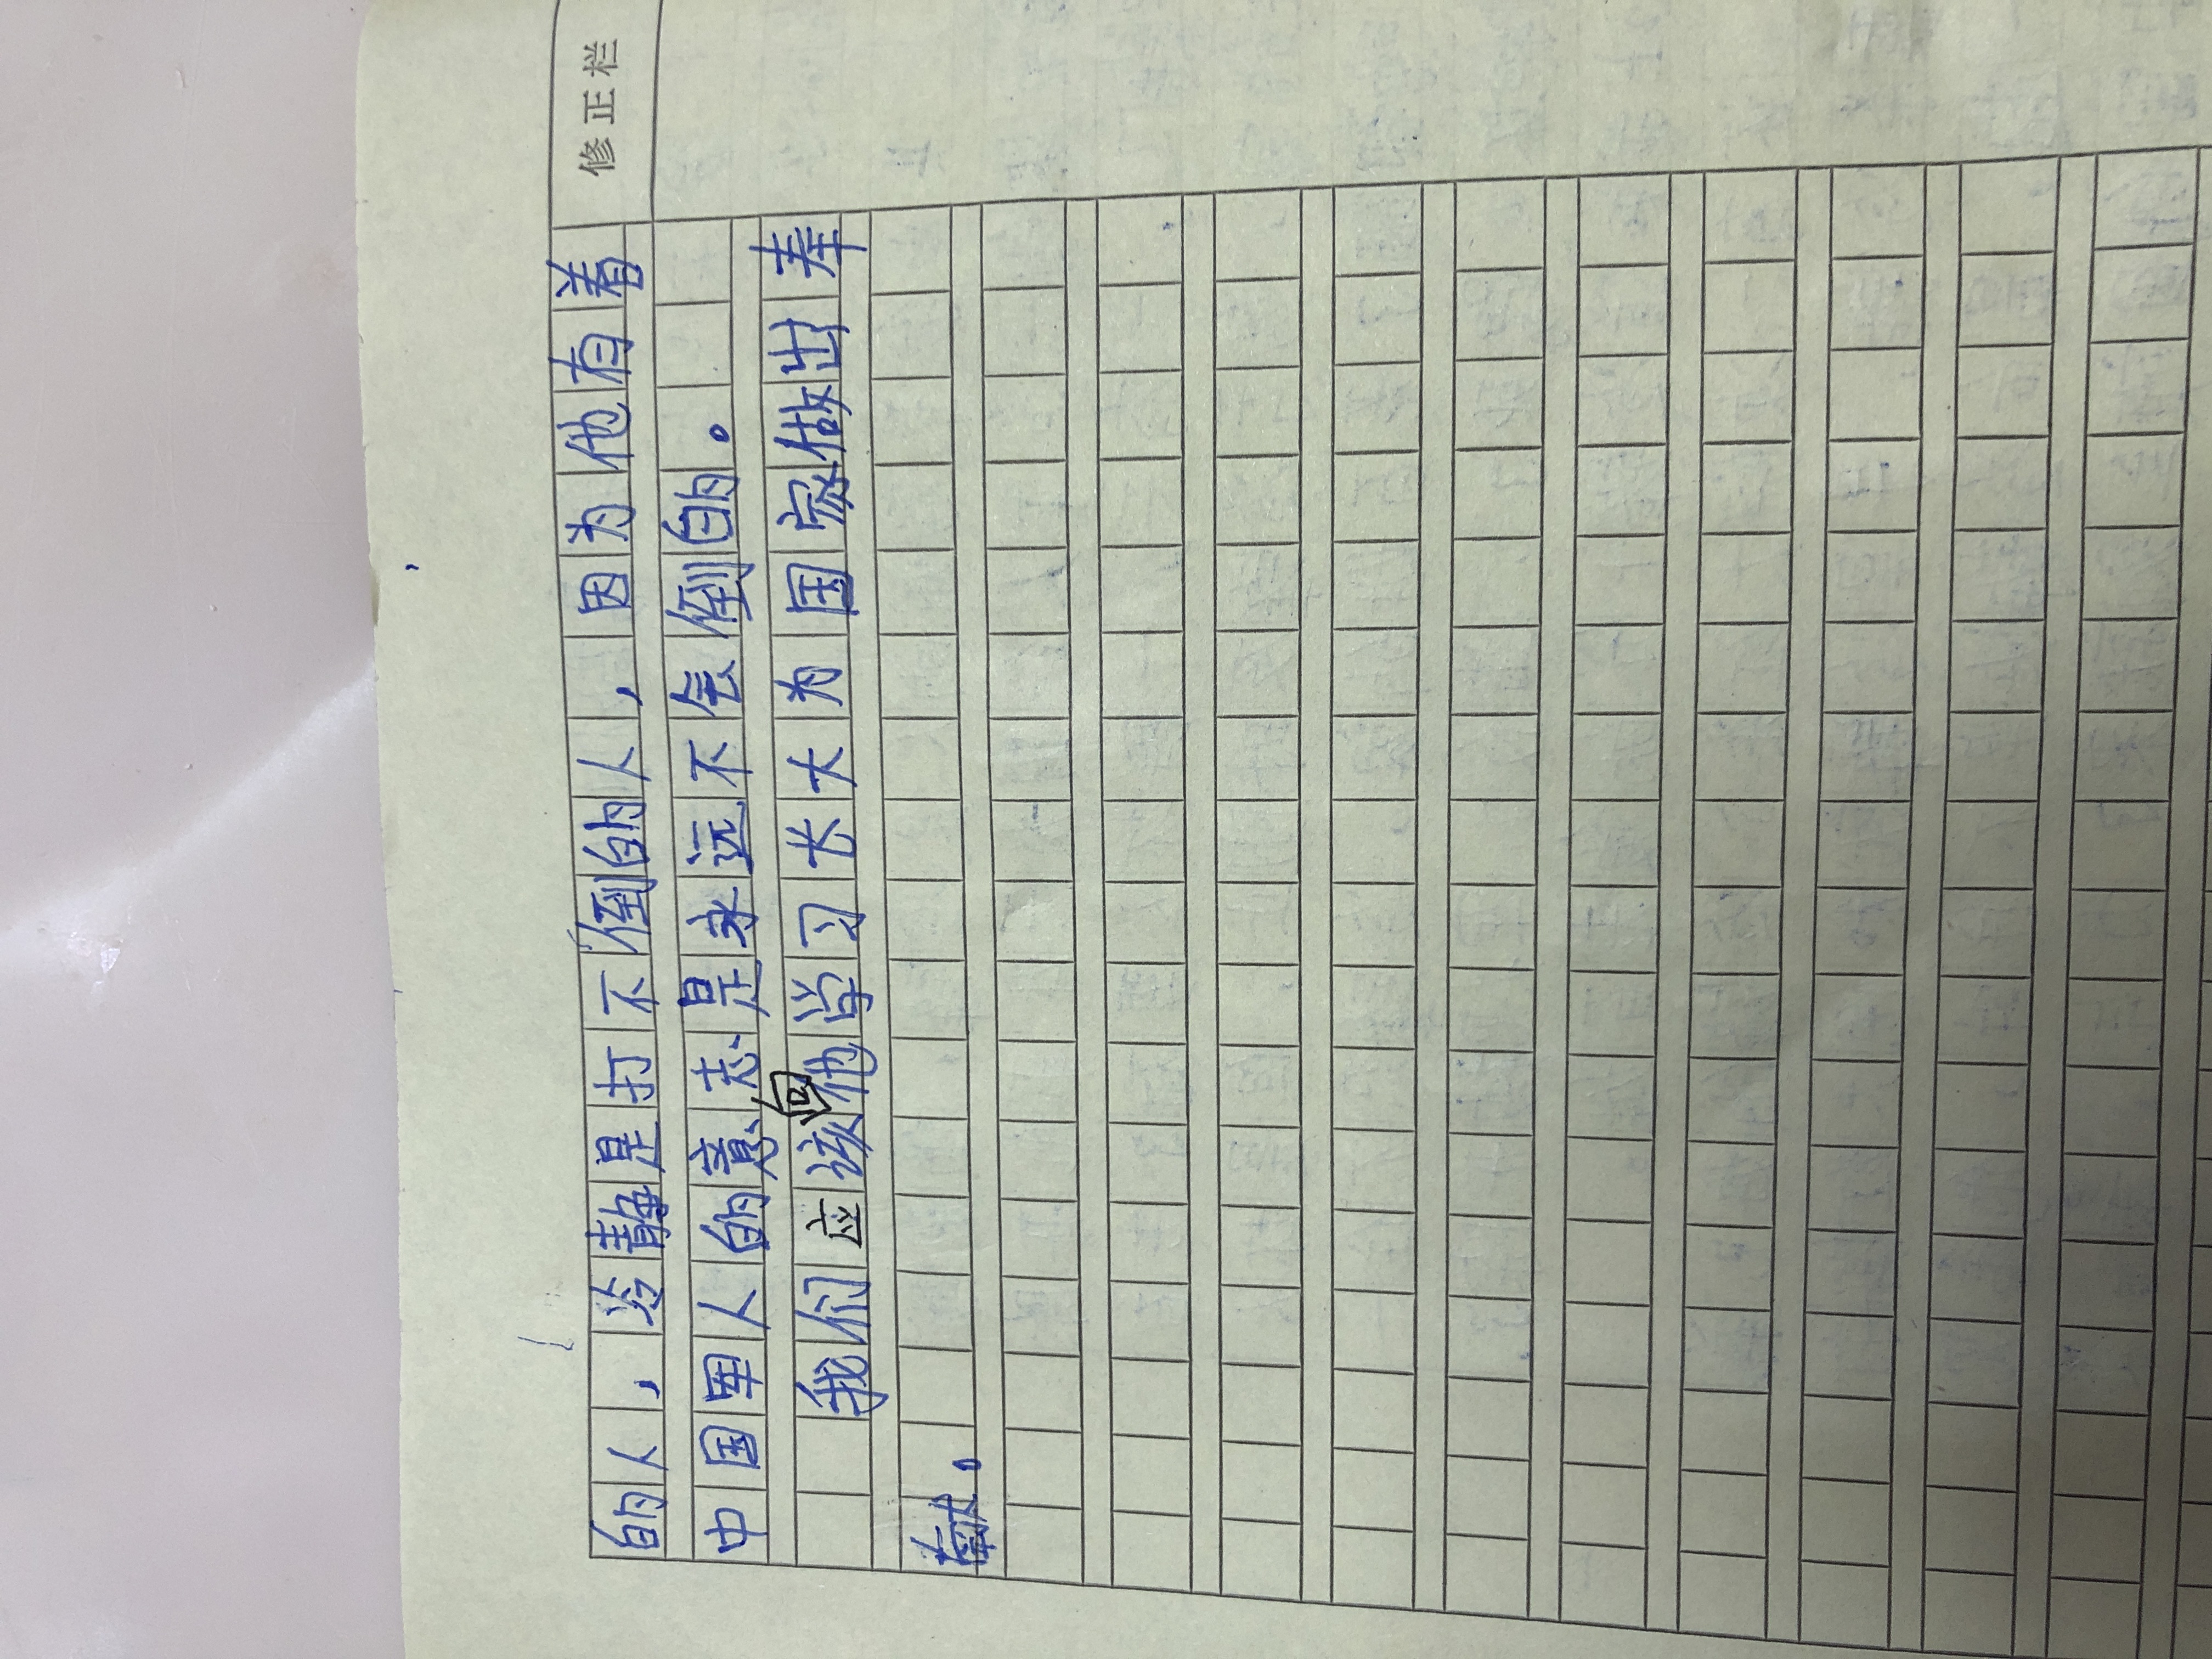 修正栏
的人，冷静是打不倒的人，因为他有着
中国军人的意志是永远不会倒的。
我们应该向他学习长大为国家做出奉
献。